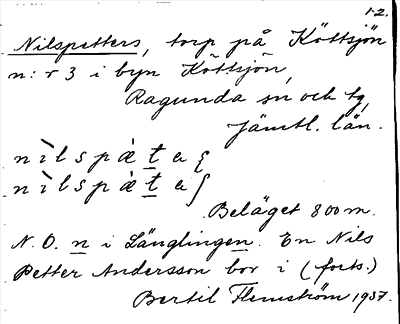 1-2.
Nilspetters, torp på Köttsjön
n:r 3 i byn Köttsjön,
Ragunda sn, och tg,
Jämtl. län.
nìlspὰt̲a
nìlspὰt̲a
Beläget 800 m.
N. O. n i Länglingen. En Nils
Petter Andersson bor i (forts.)
Bertil Flemström 1937.